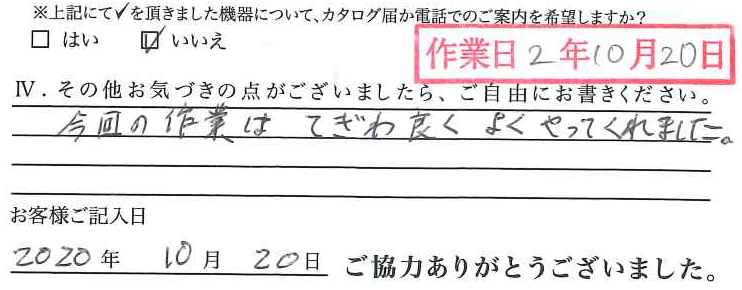 ※上記にて✓を頂きました機器について、カタログ届か電話でのご案内を希望しますか?
□ はい ☑ いいえ
作業日 2年10月20日
Ⅳ．その他お気づきの点がございましたら、ご自由にお書きください。
今回の作業は てぎわ良く よくやってくれました。
お客様ご記入日
2020年 10月 20日 ご協力ありがとうございました。